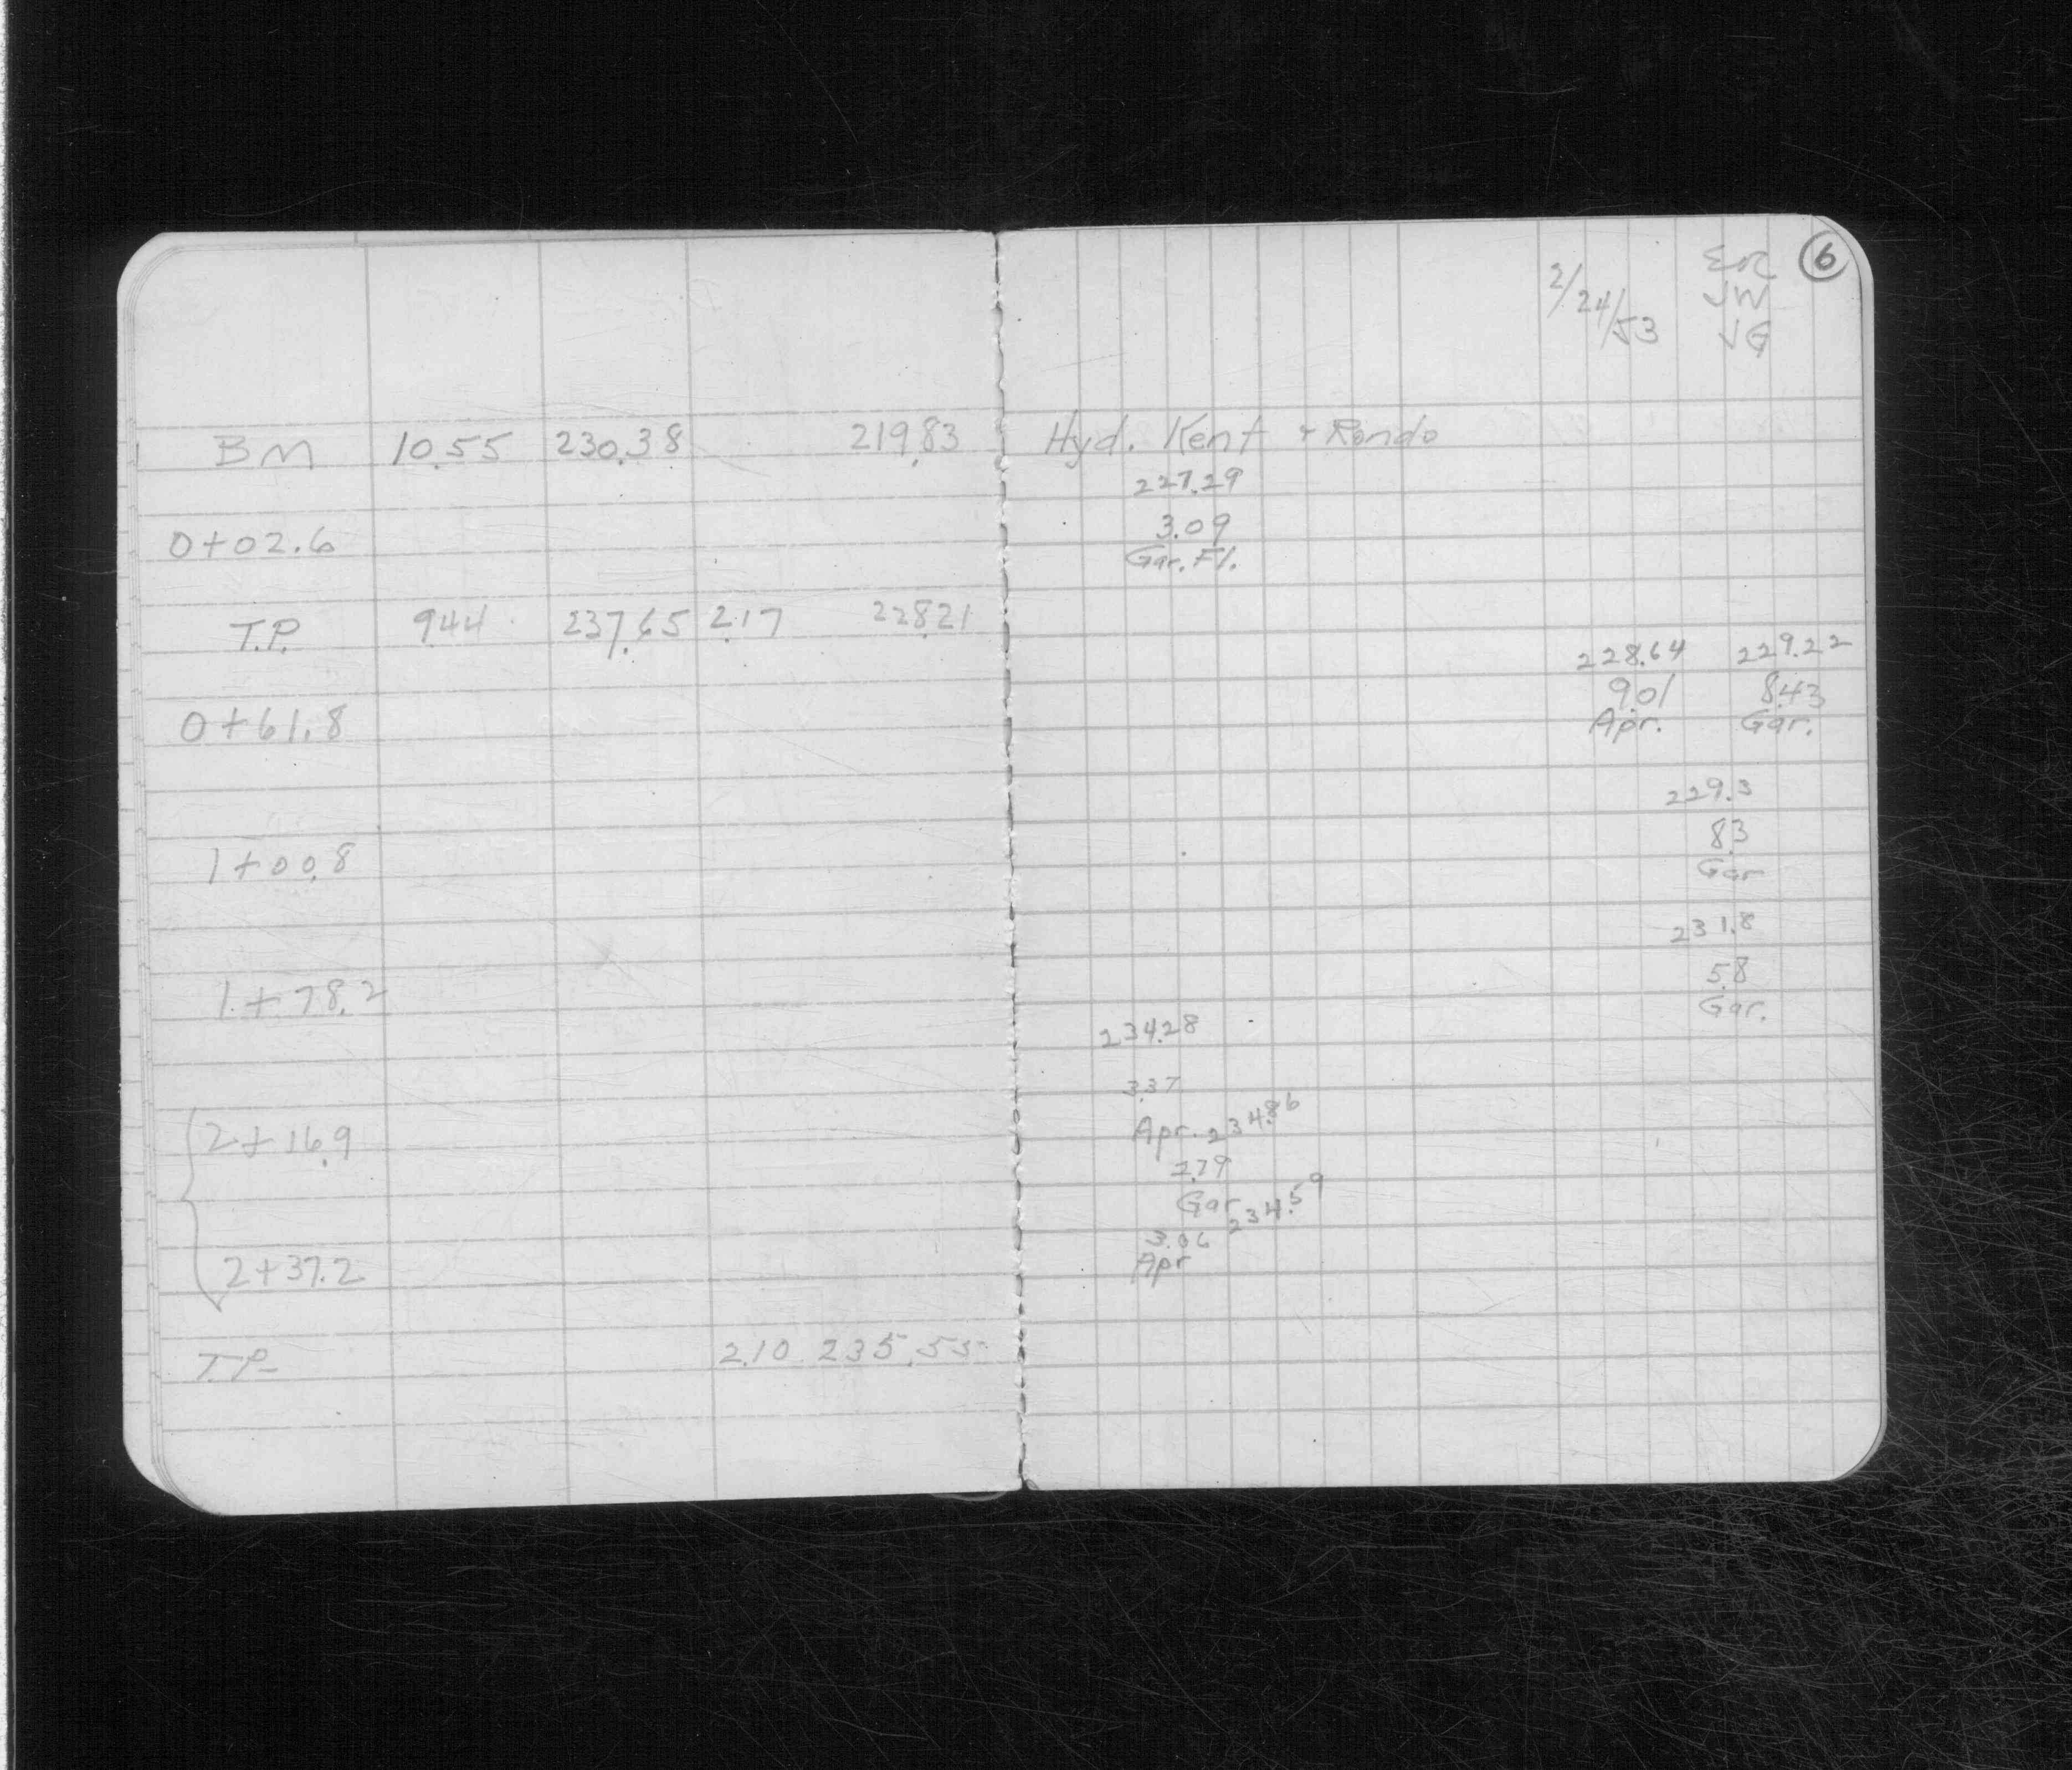 6
2/24/53
JW
JG
BM 10.55 230.38 219.83 Hyd. Kent + Rondo
227.29
0+02.6 3.09
Gar. Fl.
T.P. 9.44 237.65 2.17 228.21
228.64 229.22
0+61.8 9.01 8.43
Apr. Gar.
229.3
1+00.8 8.3
Gar
231.8
1+78.2 5.8
Gar.
234.28
3.37
2+16.9 Apr. 234.86
2.79
Gar 234.59
3.06
2+37.2 Apr
T.P. 2.10 235.55